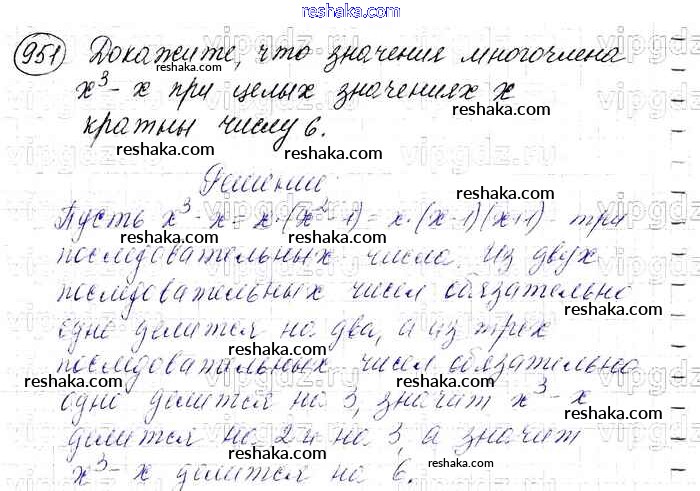 reshaka.com
951 Докажите, что значения многочлена
reshaka.com
x³ - x при целых значениях x
reshaka.com
reshaka.com
кратны числу 6.
reshaka.com
Решение:
reshaka.com
Пусть x³ - x = x·(x² - 1) = x·(x-1)(x+1) - три
reshaka.com
последовательных числа. Из двух
reshaka.com
последовательных чисел обязательно
reshaka.com
одно делится на два, а из трех
reshaka.com
последовательных чисел обязательно
reshaka.com reshaka.com
одно делится на 3, значит x³ - x
reshaka.com
делится на 2 и на 3, а значит
reshaka.com
x³ - x делится на 6.
reshaka.com
vipgdz.ru